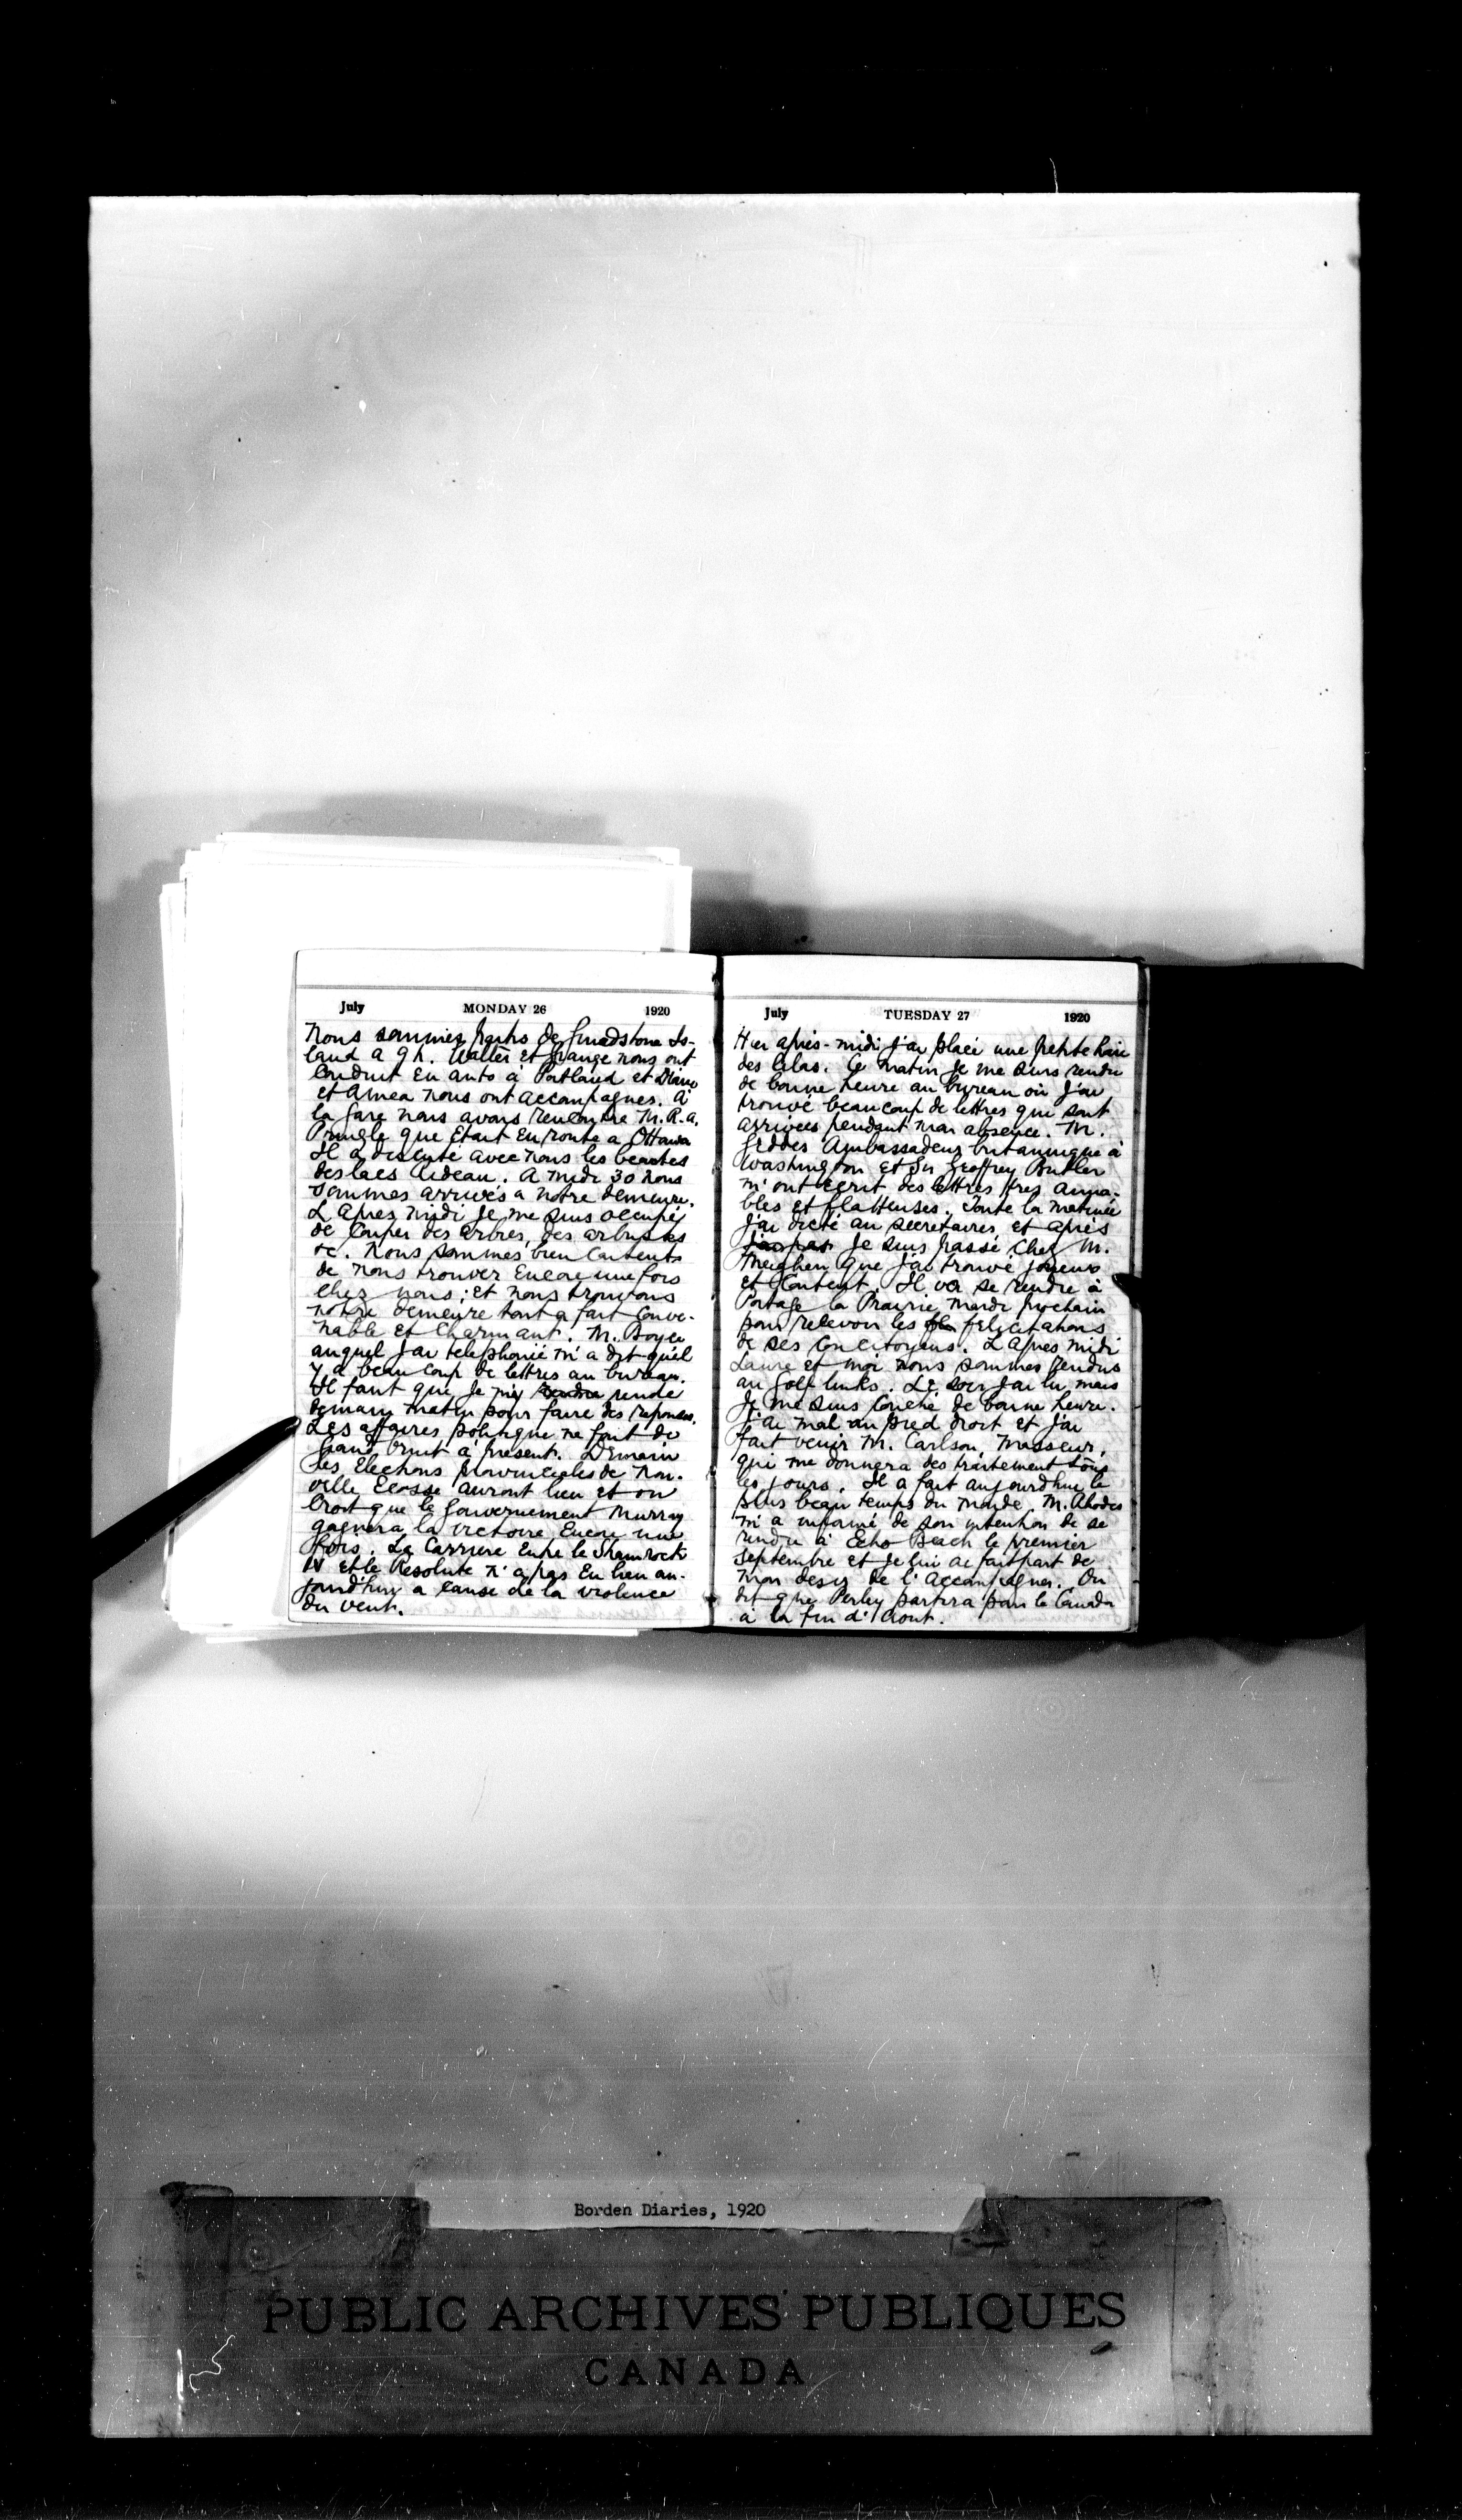 July MONDAY 26 1920
Nous sommes partis de Grindstone Is-
land a 9 h. Walter et Grange nous ont
conduit en auto à Portland et Diane
et Amea nous ont accompagnes. A
la gare nous avons rencontre M. R. A.
Pringle que etait en route a Ottawa
Il a discuté avec nous les beautes
des lacs Rideau. A midi 30 nous
sommes arrivés a notre demeure.
L'Apres midi je me suis occupé
de couper des arbres, des arbustes
&c. Nous sommes bien contents
de nous trouver encore une fois
chez nous; et nous trouvons
notre demeure tout a fait conve-
nable et charmant. M. Boyce
auquel j'ai telephonié m'a dit qu'il
y a beaucoup de lettres au bureau.
Il faut que je m'y rendre rende
demain matin pour faire des reponses.
Les affaires politique ne font de
grand bruit a present. Demain
les Elections provinciales de Nou-
velle Ecosse auront lieu et on
croit que le Gouvernement Murray
gagnera la victoire encore une
fois. La Carriere entre le Shamrock
IV et le Resolute n'a pas eu lieu au-
jourd'hui a cause de la violence
du vent.
July TUESDAY 27 1920
Hier après-midi j'ai placé une petite haie
des lilas. Ce matin je me suis rendu
de bonne heure au bureau où j'ai
trouvé beaucoup de lettres qui sont
arrivées pendant mon absence. M.
Geddes Ambassadeur britannique à
Washington et Sir Geoffrey Butler
m'ont ecrit des lettres tres aima-
bles et flatteuses. Toute la matinée
j'ai dicté au secretaires et après
j'ai pas je suis passé chez M.
Meighen que j'ai trouvé joyeux
et content. Il va se rendre à
Portage la Prairie mardi prochain
pour recevoir les felicitations
de ses concitoyens. L'Apres midi
Laura et moi nous sommes rendus
au golf links. Le soir j'ai lu mais
je me suis couché de bonne heure.
J'ai mal au pied droit et j'ai
fait venir M. Carlson, Masseur,
qui me donnera des traitement tous
les jours. Il a fait aujourdhui le
plus beau temps du monde. M. Rhodes
m'a informé de son intention de se
rendre à Echo Beach le premier
Septembre et je lui ai fait part de
mon desir de l'accompagner. On
dit que Perley partira pour le Canada
à la fin d'Aout.
Borden Diaries, 1920
PUBLIC ARCHIVES PUBLIQUES
CANADA